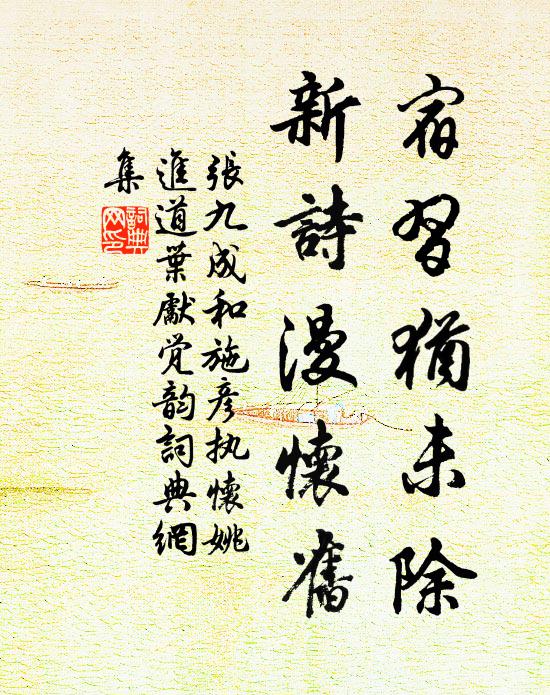 宿習猶未除
新詩漫懷舊
張九成和施彦执懷姚
進道葉獻覺韵詞典網
集
詞典
网印